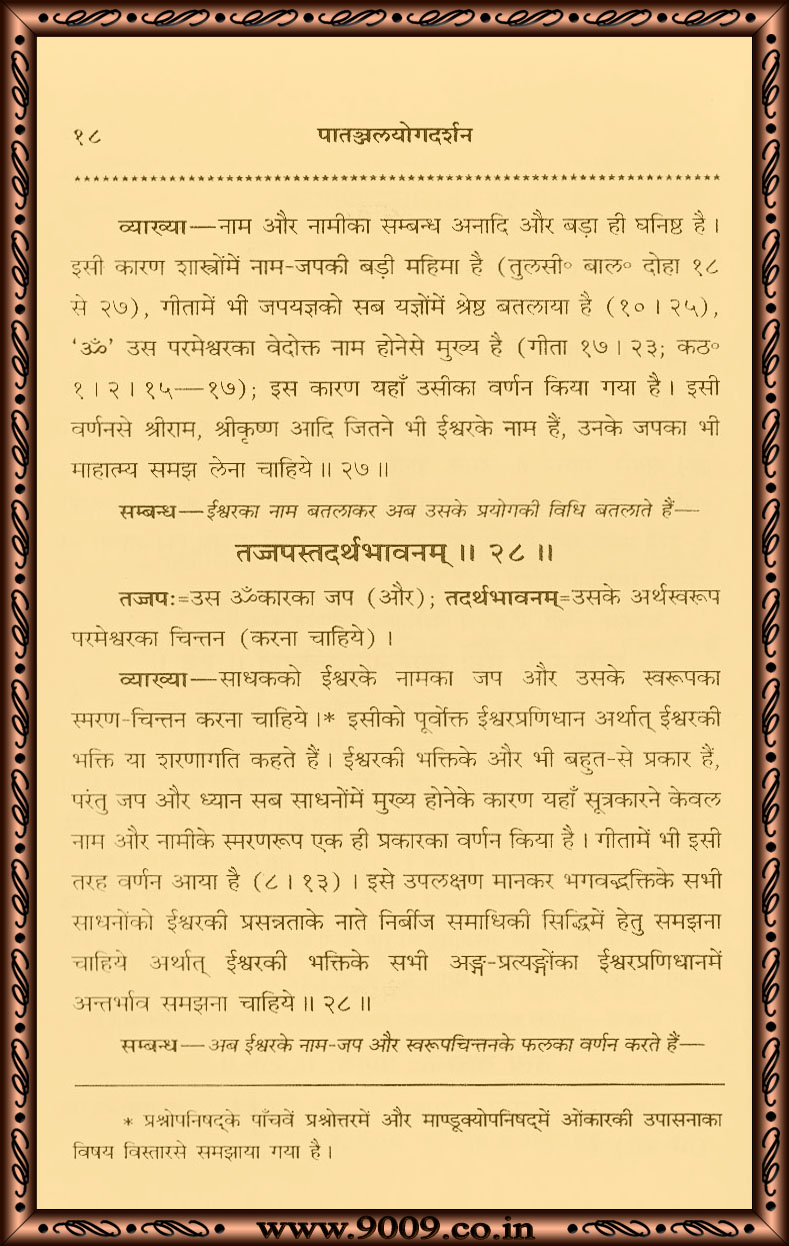 १८ पातञ्जलयोगदर्शन
व्याख्या—नाम और नामीका सम्बन्ध अनादि और बड़ा ही घनिष्ठ है ।
इसी कारण शास्त्रोंमें नाम-जपकी बड़ी महिमा है (तुलसी० बाल० दोहा १८
से २७), गीतामें भी जपयज्ञको सब यज्ञोंमें श्रेष्ठ बतलाया है (१० । २५),
‘ॐ’ उस परमेश्वरका वेदोक्त नाम होनेसे मुख्य है (गीता १७ । २३; कठ०
१ । २ । १५—१७); इस कारण यहाँ उसीका वर्णन किया गया है । इसी
वर्णनसे श्रीराम, श्रीकृष्ण आदि जितने भी ईश्वरके नाम हैं, उनके जपका भी
माहात्म्य समझ लेना चाहिये ॥ २७ ॥
सम्बन्ध—ईश्वरका नाम बतलाकर अब उसके प्रयोगकी विधि बतलाते हैं—
तज्जपस्तदर्थभावनम् ॥ २८ ॥
तज्जपः=उस ॐकारका जप (और); तदर्थभावनम्=उसके अर्थस्वरूप
परमेश्वरका चिन्तन (करना चाहिये) ।
व्याख्या—साधकको ईश्वरके नामका जप और उसके स्वरूपका
स्मरण-चिन्तन करना चाहिये ।* इसीको पूर्वोक्त ईश्वरप्रणिधान अर्थात् ईश्वरकी
भक्ति या शरणागति कहते हैं । ईश्वरकी भक्तिके और भी बहुत-से प्रकार हैं,
परंतु जप और ध्यान सब साधनोंमें मुख्य होनेके कारण यहाँ सूत्रकारने केवल
नाम और नामीके स्मरणरूप एक ही प्रकारका वर्णन किया है । गीतामें भी इसी
तरह वर्णन आया है (८ । १३) । इसे उपलक्षण मानकर भगवद्भक्तिके सभी
साधनोंको ईश्वरकी प्रसन्नताके नाते निर्बीज समाधिकी सिद्धिमें हेतु समझना
चाहिये अर्थात् ईश्वरकी भक्तिके सभी अङ्ग-प्रत्यङ्गोंका ईश्वरप्रणिधानमें
अन्तर्भाव समझना चाहिये ॥ २८ ॥
सम्बन्ध—अब ईश्वरके नाम-जप और स्वरूपचिन्तनके फलका वर्णन करते हैं—
* प्रश्नोपनिषद्के पाँचवें प्रश्नोत्तरमें और माण्डूक्योपनिषद्में ओंकारकी उपासनाका
विषय विस्तारसे समझाया गया है ।
www.9009.co.in